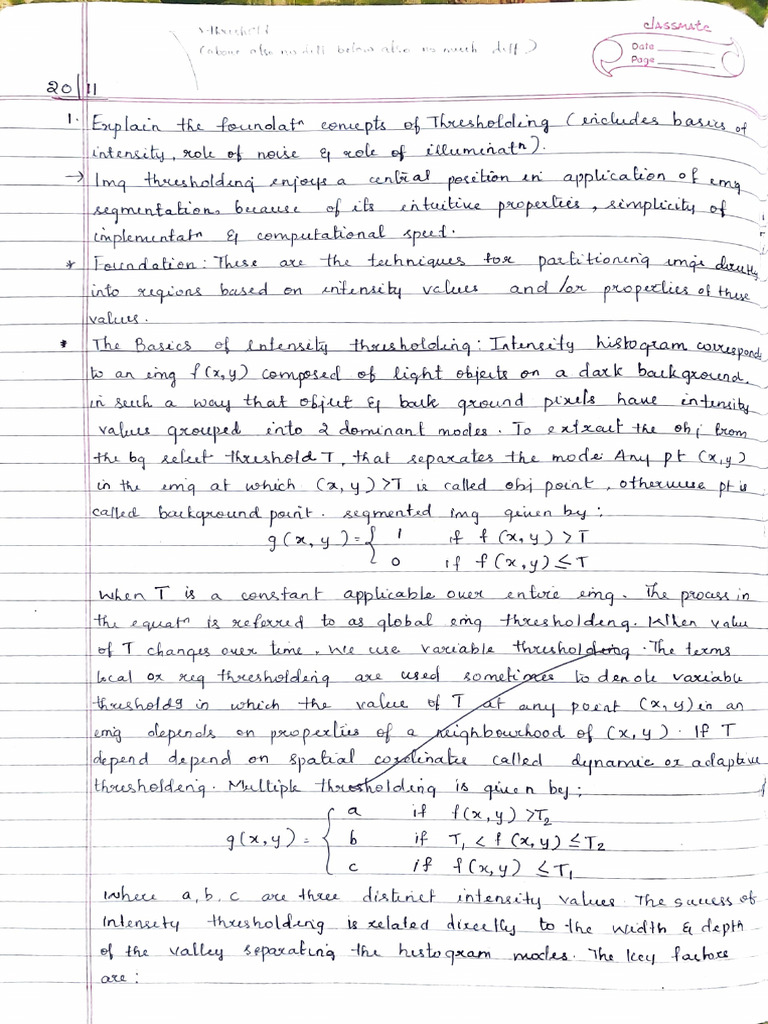 classmate
Date
Page
(above also no diff below also no much diff)
20/11
1. Explain the foundatⁿ concepts of Thresholding (includes basics of
intensity, role of noise & role of illuminatⁿ).
→ Img thresholding enjoys a central position in application of img
segmentation, because of its intuitive properties, simplicity of
implementatⁿ & computational speed.
* Foundation: These are the techniques for partitioning imge directly
into regions based on intensity values and/or properties of these
values.
* The Basics of Intensity thresholding: Intensity histogram corresponds
to an img f(x,y) composed of light objects on a dark background,
in such a way that object & back ground pixels have intensity
values grouped into 2 dominant modes. To extract the obj from
the bg select threshold T, that separates the mode. Any pt (x,y)
in the img at which (x,y)>T is called obj point, otherwise pt is
called background point. segmented img given by:
g(x,y)= { 1 if f(x,y)>T
0 if f(x,y)≤T
When T is a constant applicable over entire img. The process in
the equatⁿ is referred to as global img thresholding. When value
of T changes over time, we use variable thresholding. The terms
local or reg thresholding are used sometimes to denote variable
thresholdg in which the value of T at any point (x,y) in an
img depends on properties of a neighbourhood of (x,y). If T
depend depend on spatial coordinates called dynamic or adaptive
thresholding. Multiple thresholding is given by:
g(x,y)= { a if f(x,y)>T₂
b if T₁ < f(x,y) ≤T₂
c if f(x,y) ≤T₁
where a,b,c are three distinct intensity values. The success of
intensity thresholding is related directly to the width & depth
of the valley separating the histogram modes. The key factors
are: